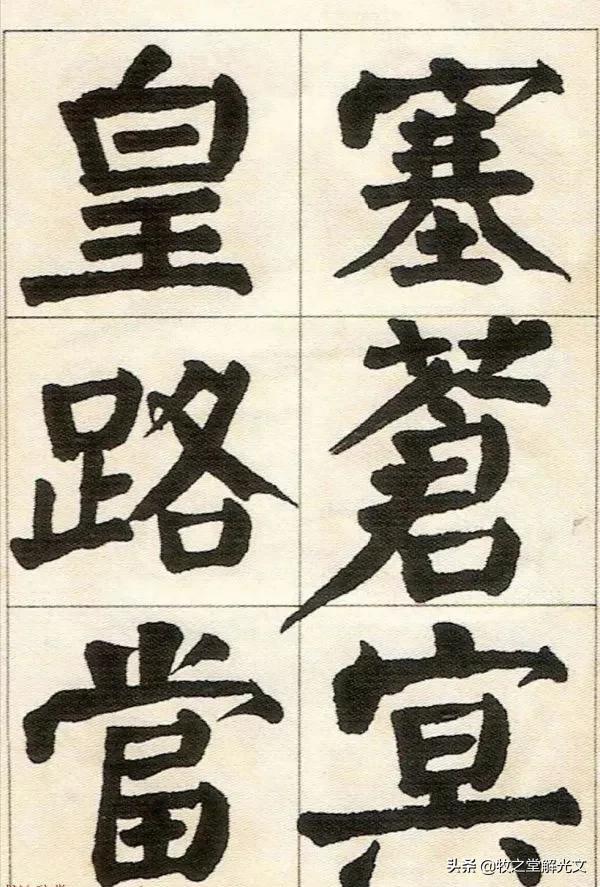 塞蒼冥
皇路當
头条 @牧之堂解光文